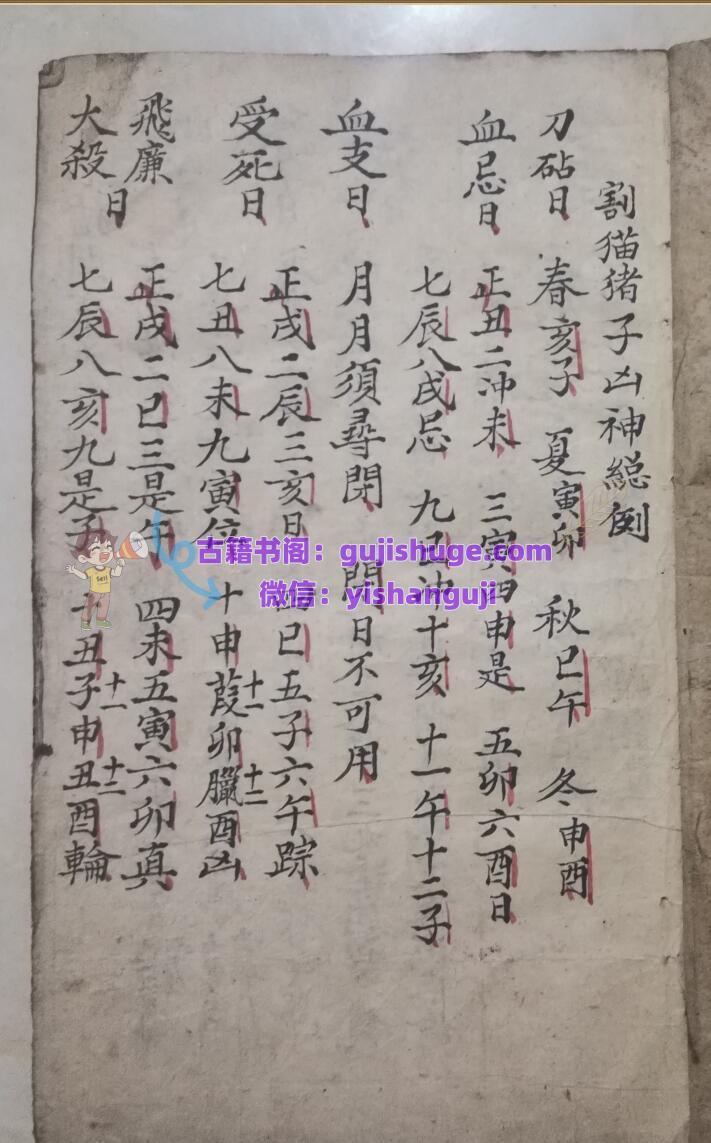 割猫猪子凶神總例
刀砧日 春亥子 夏寅卯 秋巳午 冬申酉
血忌日 正丑二冲未 三寅四申是 五卯六酉日
七辰八戌忌 九巳冲十亥 十一午十二子
血支日 月月須尋閉 閉日不可用
受死日 正戌二辰三亥日 巳五子六午踪
七丑八未九寅 十申十一葭卯十二臘酉凶
飛廉大殺日 正戌二巳三是午 四未五寅六卯真
七辰八亥九是子 丑十一子申十二丑酉輪
古籍书阁：gujishuge.com
微信：yishanguji
Sell